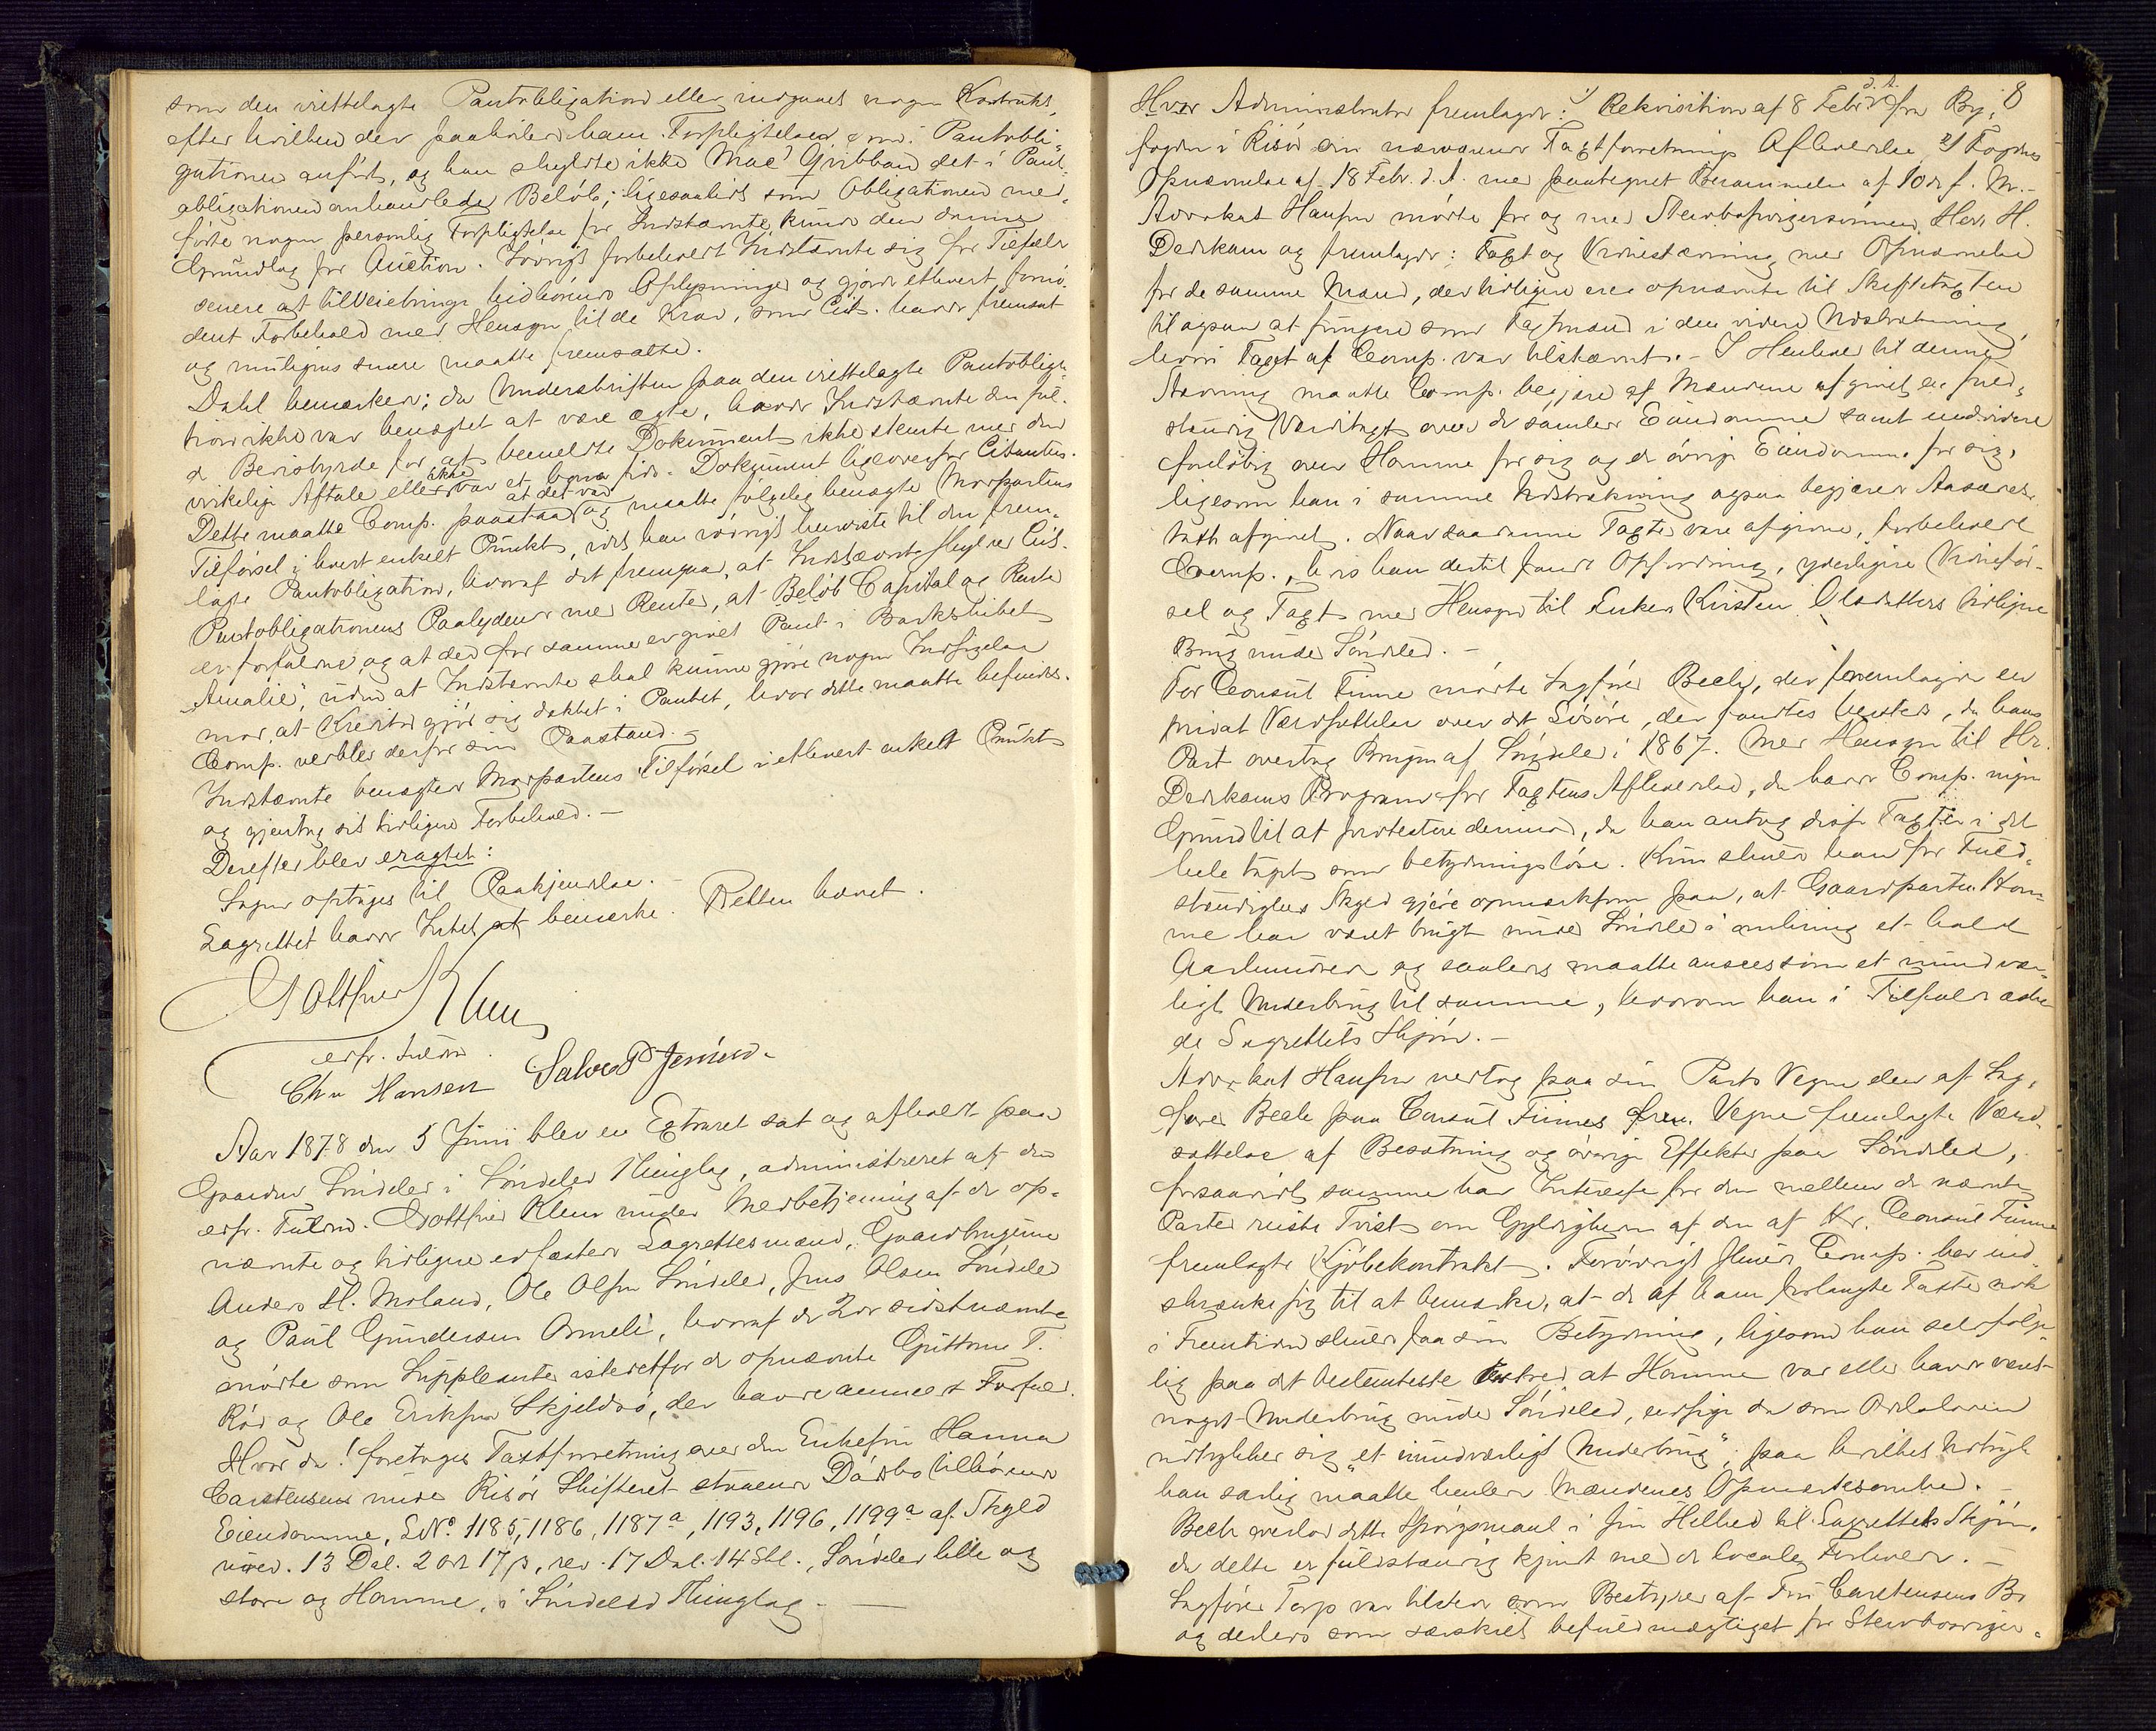 som den irettelagte Pantobligation eller indgaaet nogen Kontrakt,
efter hvilken der paahviler ham Forpligtelser som i Pantobli-
gationen anført, og han skyldte ikke Mac' Gribban det i Pant-
obligationen omhandlede Beløb; ligesaalidt som Obligationen med-
førte nogen personlig Forpligtelse for Indstævnte, kunde den danne
Grundlag for Auction. Iøvrigt forbeholdt Indstævnte sig for Tilfælde
senere at tilveiebringe henhørende Oplysninger og gjorde ethvert forno-
dent Forbehold med Hensyn til de Krav, som Cit. havde fremsat
og muligens senere maatte fremsætte.
Dahl bemærker; da Underskriften paa den irettelagte Pantobliga-
tion ikke var benægtet at være ægte, havde Indstævnte den ful-
de Bevisbyrde for at bemeldte Dokument ikke stemte med den
virkelige Aftale eller ikke var et bona fide Dokument ligeoverfor Citanten.
Dette maatte Comp. paastaa at det var og maatte følgelig benægte Modpartens
Tilførsel i hvert enkelt Punkt, idet han iøvrigt henviste til den frem-
lagte Pantobligation, hvoraf det fremgaar, at Indstævnte skylder Cit.
Pantobligationens Paalydende med Renter, at Beløb Capital og Rente
er forfalden, og at der for samme er givet Pant i Barkskibet
"Amalie", uden at Indstævnte skal kunne gjøre nogen Indsigelse
mod, at Kreditor gjør sig dækket i Pantet, hvor dette maatte befindes.
Comp. verbler derfor sin Paastand. -
Indstævnte benægter Modpartens Tilførsel i ethvert enkelt Punkt
og gjentog sit tidligere Forbehold. -
Derefter blev eragtet:
Sagen optages til Paakjendelse. -
Lagrettet havde Intet at bemærke. Retten hævet.
Gottfried Klem
edsv. Fuldm.
Chr. Hansen Salve P Jensen.
Aar 1878 den 5 Juni blev en Extraret sat og afholdt paa
Gaarden Søndeled i Søndeled Thinglag, administreret af den
edsv. Fuldm. Gottfried Klem under Medbetjening af de op-
nævnte og tidligere edfæstede Lagrettesmænd, Gaardbrugerne
Anders H. Moland, Ole Olsen Søndeled, Jens Olsen Søndeled
og Paul Gundersen Ormeli, hvoraf de 2de sidstnævnte
mødte som Suppleanter istedetfor de opnævnte Guttorm T.
Rød og Ole Eriksen Skjeldsø, der havde anmeldt Forfald.
Hvor da! foretoges Taxtforretning over den Enkefru Hanna
Carstensens under Risør Skifteret staaende Dødsbo tilhørende
Eiendomme, L.No. 1185, 1186, 1187a, 1193, 1196, 1199a af Skyld
uved. 13 Dal. 2 ort 17 ß, rev. 17 Dal. 14 Skl., Søndeled lille og
store og Homme, i Søndeled Thinglag. -
8
Hvor Administrator fremlagde: 1) Rekvisition af 8 Febr. d. A. fra By-
fogden i Risør om nærværende Taxtforretnings Afholdelse, 2) Fogdens
Opnævnelse af 18 Febr. d. A. med paategnet Berammelse af 10de f. M. -
Advokat Hansen mødte for og med Stervbosvigersønnen, Herr H.
Dedekam og fremlagde: Taxt og Vidnestævning med Opnævnelse
for de samme Mænd, der tidligere ere opnævnte til Skiftetaxten
til ogsaa at fungere som Taxtmænd i den videre Udstrækning,
hvori Taxt af Comp. var tilstævnt. - I Henhold til denne
Stævning maatte Comp. begjære af Mændene afgivet en fuld-
stændig Værditaxt over de samlede Eiendomme samt endvidere
foreløbig over Homme for sig og de øvrige Eiendomme for sig,
ligesom han i samme Udstrækning ogsaa begjærer Aasædes-
taxt afgivet. Naar saadanne Taxter vare afgivne, forbeholdt
Comp., hvis han dertil fandt Opfordring, yderligere Vidneføl-
sel og Taxt med Hensyn til Enken Kirsten Olsdatters tidligere
Brug under Søndeled. -
For Consul Finne mødte Sagfører Bech, der fremlagde en
privat Værdsættelse over det Løsøre, der fandtes ..., da hans
Part overtog Brugen af Søndeled i 1867. Med Hensyn til Hr.
Dedekams Program for Taxtens Afholdelse, da havde Comp. ingen
Grund til at protestere derimod, da han antog disse Taxter i det
hele taget som betydningsløse. Kun skulde han for Fuld-
stændigheds Skyld gjøre opmærksom paa, at Gaardparten Hom-
me har været brugt under Søndeled i omkring et halvt
Aarhundrede og saaledes maatte ansees som et uundvær-
ligt Underbrug til samme, hvorom han i Tilfælde æske-
de Lagrettets Skjøn. -
Advokat Hansen vedtog paa sin Parts Vegne den af Sag-
fører Bech paa Consul Finnes Vegne fremlagte Værd-
sættelse af Besætning og øvrige Effekter paa Søndeled,
forsaavidt samme har Interesse for den mellem de nævnte
Parter reiste Tvist om Gyldigheden af den af Hr. Consul Finne
fremlagte Kjøbekontrakt. Forøvrigt skulde Comp. her ind-
skrænke sig til at bemærke, at de af ham forlangte Taxter nok
i Fremtiden skulde faa sin Betydning, ligesom han selvfølge-
lig paa det bestemteste bestred, at Homme var eller havde været
noget Underbrug under Søndeled, endsige da som Ordlyden
udtrykker sig „et uundværligt Underbrug", paa hvilket Udtryk
han særlig maatte henlede Mændenes Opmærksomhed. -
Bech overlod dette Spørgsmaal i sin Helhed til Lagrettets Skjøn,
da dette er fuldstændig kjendt med de locale Forholde. -
Sagfører Torp var tilstede som Bestyrer af Fru Carstensens Bo
og desuden som særskilt befuldmægtiget for Stervbosviger-